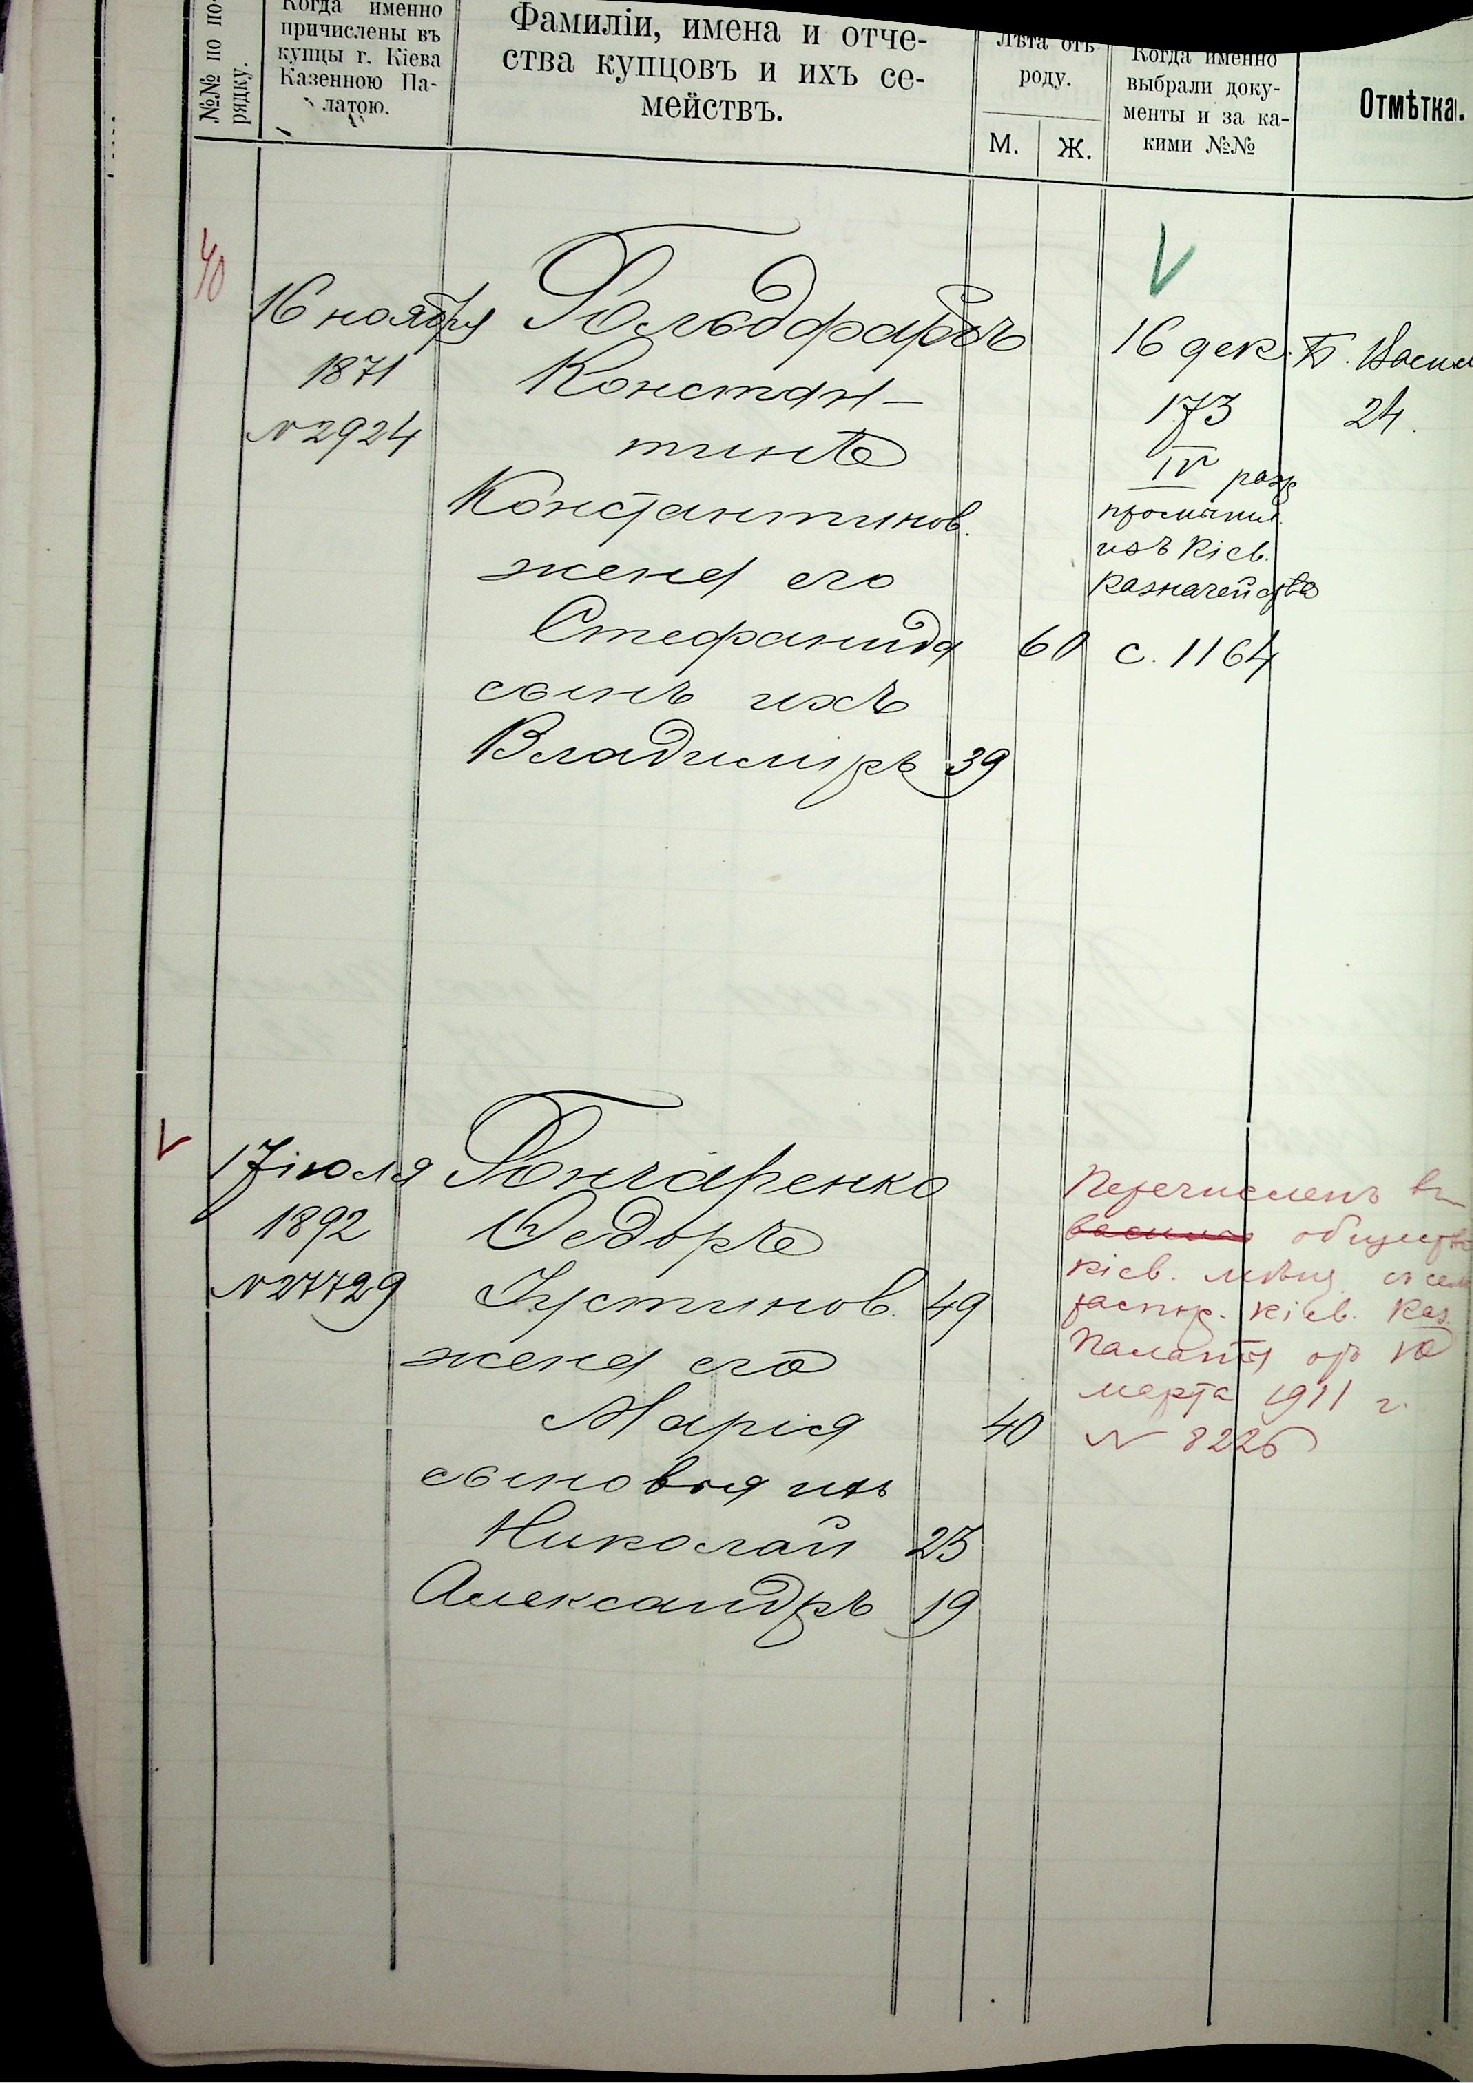 №№ по по-
рядку.
Когда именно
причислены въ
купцы г. Кіева
Казенною Па-
латою.
Фамиліи, имена и отче-
ства купцовъ и ихъ се-
мействъ.
Лѣта отъ
роду.
М.
Ж.
Когда именно
выбрали доку-
менты и за ка-
кими №№
Отмѣтка.
40
16 ноября
1871
№ 2924
Гольдфарбъ
Констан-
тинъ
Константинов.
жена его
Стефанида 60
сынъ ихъ
Владиміръ 39
16 дек.
173
IV разр
промысл.
изъ Кіев.
казначейства
с. 1164
Б. Васил
24.
17 іюля
1892
№ 27729
Гончаренко
Ѳедоръ
Іустинов. 49
жена его
Марія 40
сыновья ихъ
Николай 25
Александръ 19
Перечисленъ въ
общество
кіев. мѣщ. съ сем
распор. Кіев. Каз.
Палаты отъ 10
марта 1911 г.
№ 8226